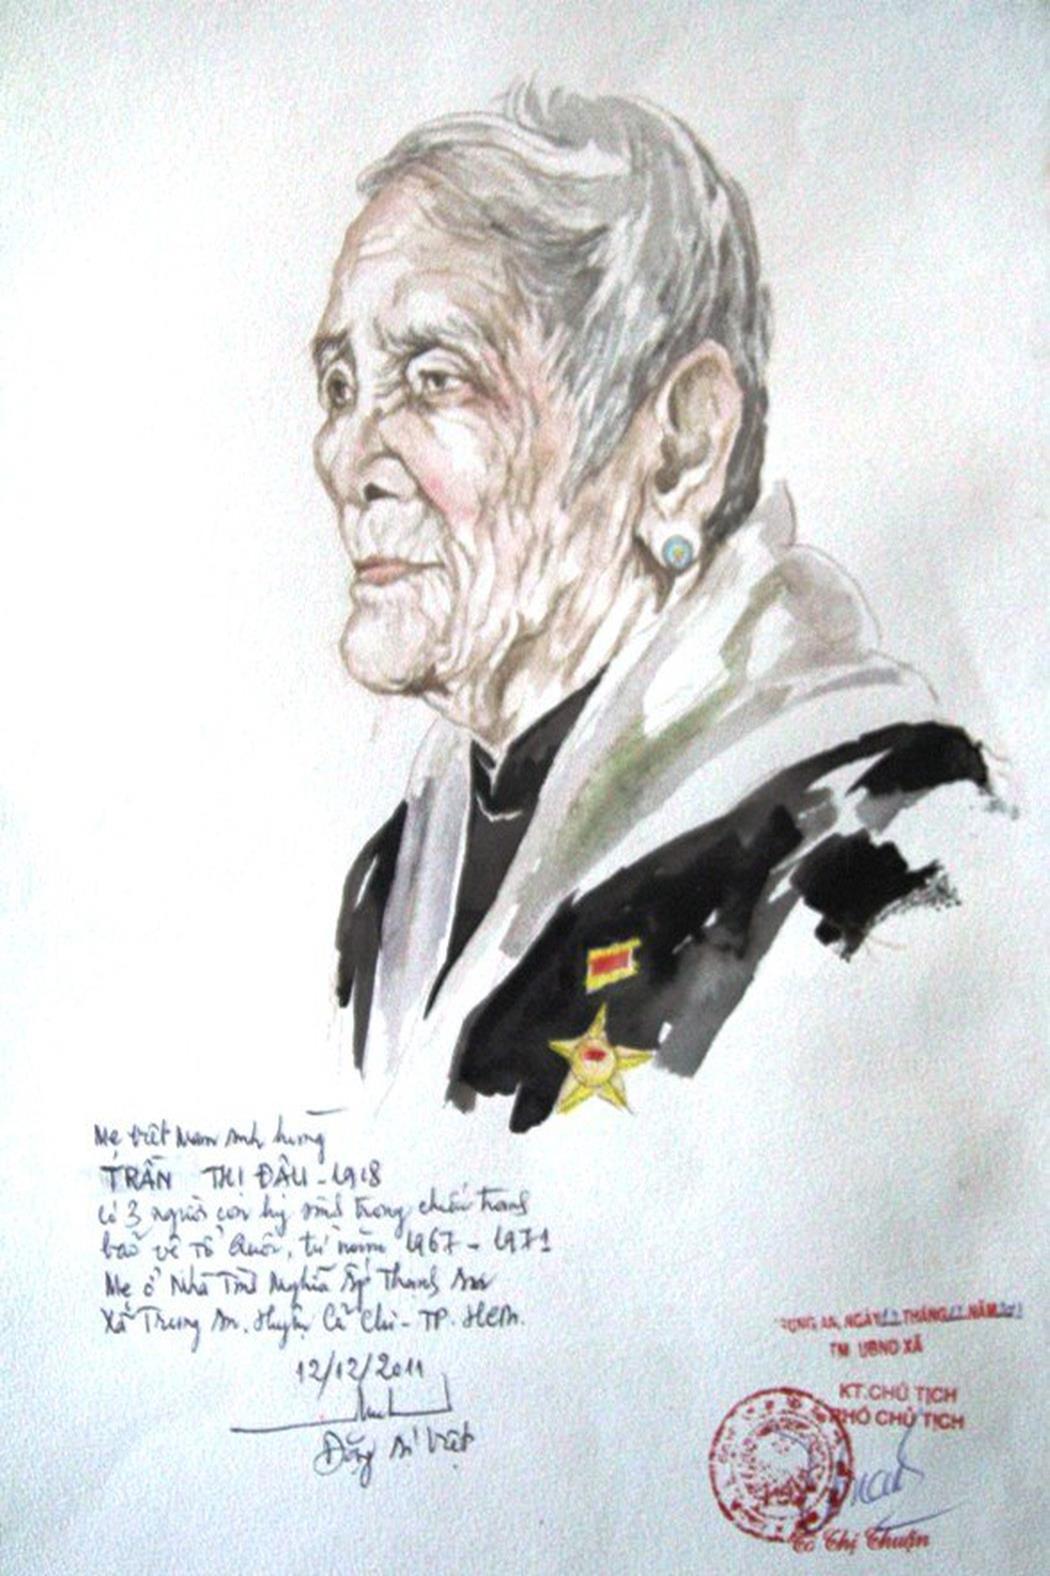 Mẹ Việt Nam Anh hùng
TRẦN THỊ ĐẬU - 1918
có 3 người con hy sinh trong chiến tranh
bảo vệ Tổ Quốc, từ năm 1967 - 1971
Mẹ ở Nhà Tình Nghĩa ấp Thanh An
Xã Trung An. Huyện Củ Chi - TP. HCM.
12/12/2011
Đặng Ái Việt
TRUNG AN, NGÀY 12 THÁNG 12 NĂM 2011
TM UBND XÃ
KT.CHỦ TỊCH
PHÓ CHỦ TỊCH
Thị Thuận